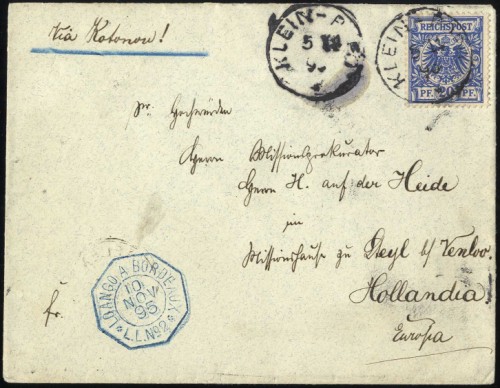 via Kotonou!
KLEIN-P
5
95
KLEIN
REICHSPOST
PF. 20 PF.
Sr. Hochwürden
Herrn Missionsprokurator
Herrn H. auf der Heide
im
Missionshause zu Steyl b/ Venloo.
Hollandia
Europa
fr.
LOANGO A BORDEAUX
10
NOV
95
L.L.Nº2